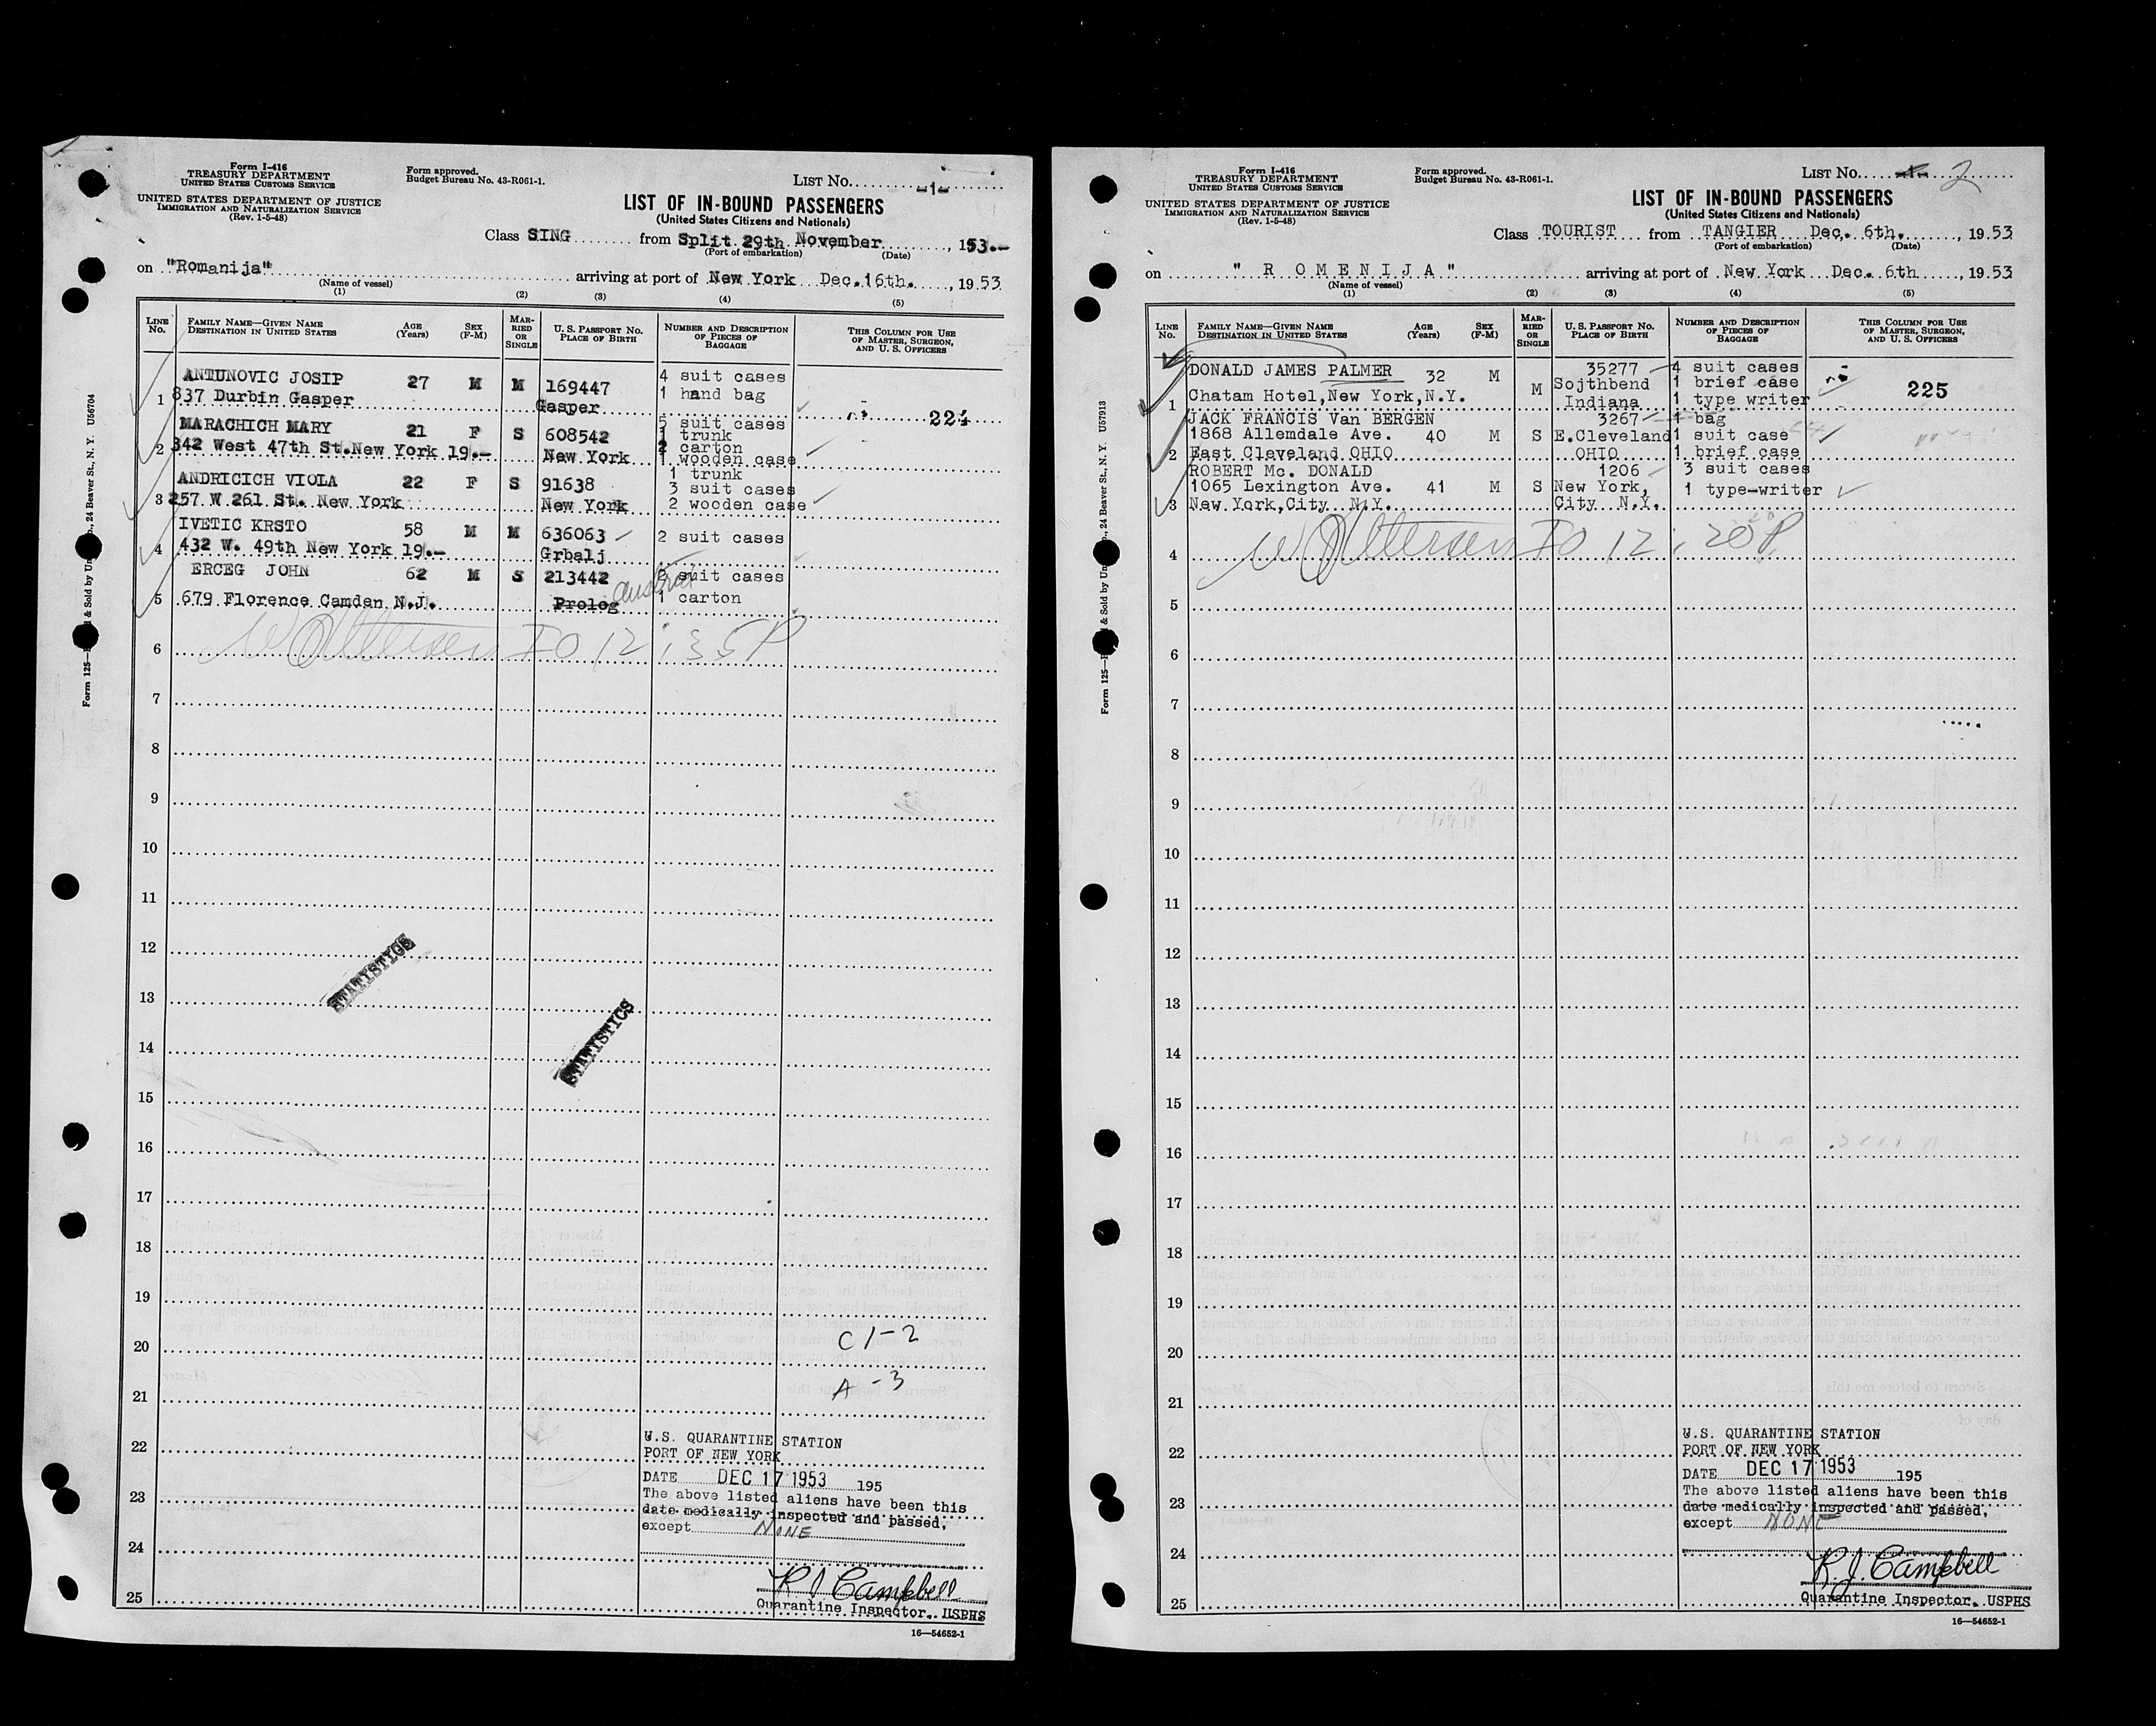 Form I-416
TREASURY DEPARTMENT
UNITED STATES CUSTOMS SERVICE
UNITED STATES DEPARTMENT OF JUSTICE
IMMIGRATION AND NATURALIZATION SERVICE
(Rev. 1-5-48)
Form approved.
Budget Bureau No. 43-R061-1.
LIST No. -1-
LIST OF IN-BOUND PASSENGERS
(United States Citizens and Nationals)
Class SING from Split 29th November, 1953.-
(Port of embarkation) (Date)
on "Romanija" arriving at port of New York Dec.16th., 1953
(Name of vessel)
(1) (2) (3) (4) (5)
LINE No. FAMILY NAME—GIVEN NAME DESTINATION IN UNITED STATES AGE (Years) SEX (F-M) MARRIED OR SINGLE U. S. PASSPORT NO. PLACE OF BIRTH NUMBER AND DESCRIPTION OF PIECES OF BAGGAGE THIS COLUMN FOR USE OF MASTER, SURGEON, AND U. S. OFFICERS
ANTUNOVIC JOSIP 27 M M 169447 4 suit cases
1 837 Durbin Gasper Gasper 1 hand bag
224
MARACHICH MARY 21 F S 608542 5 suit cases
1 trunk
2 342 West 47th St.New York 19.- New York 2 carton
1 wooden case
ANDRICICH VIOLA 22 F S 91638 1 trunk
3 suit cases
3 257 W 261 St. New York New York 2 wooden case
IVETIC KRSTO 58 M M 636063 2 suit cases
4 432 W. 49th New York 19.- Grbalj
ERCEG JOHN 62 M S 213442 2 suit cases
5 679 Florence Camden N.J. Prolog Austria 1 carton
6 IO 12:35P
7
8
9
10
11
12
13
14
15
16
17
18
19
20
21
22
23
24
25
STATISTICS
STATISTICS
C 1-2
A-3
U.S. QUARANTINE STATION
PORT OF NEW YORK
DATE DEC 17 1953 195
The above listed aliens have been this
date medically inspected and passed,
except NONE
R J Campbell
Quarantine Inspector, USPHS
16—54652-1
24 Beaver St., N. Y. U56704
Form I-416
TREASURY DEPARTMENT
UNITED STATES CUSTOMS SERVICE
UNITED STATES DEPARTMENT OF JUSTICE
IMMIGRATION AND NATURALIZATION SERVICE
(Rev. 1-5-48)
Form approved.
Budget Bureau No. 43-R061-1.
LIST No. -1- 2
LIST OF IN-BOUND PASSENGERS
(United States Citizens and Nationals)
Class TOURIST from TANGIER Dec. 6th., 1953
(Port of embarkation) (Date)
on " R O M E N I J A " arriving at port of New York Dec. 6th, 1953
(Name of vessel)
(1) (2) (3) (4) (5)
LINE No. FAMILY NAME—GIVEN NAME DESTINATION IN UNITED STATES AGE (Years) SEX (F-M) MARRIED OR SINGLE U. S. PASSPORT NO. PLACE OF BIRTH NUMBER AND DESCRIPTION OF PIECES OF BAGGAGE THIS COLUMN FOR USE OF MASTER, SURGEON, AND U. S. OFFICERS
DONALD JAMES PALMER 32 M M 35277 4 suit cases
Sojthbend 1 brief case 225
1 Chatam Hotel,New York,N.Y. Indiana 1 type writer
JACK FRANCIS Van BERGEN 3267 1 bag
1868 Allemdale Ave. 40 M S E.Cleveland 1 suit case
2 East Cleveland OHIO OHIO 1 brief case
ROBERT Mc. DONALD 1206 3 suit cases
1065 Lexington Ave. 41 M S New York, 1 type-writer
3 New York,City N.Y. City N.Y.
4 IO 12:20P
5
6
7
8
9
10
11
12
13
14
15
16
17
18
19
20
21
22
23
24
25
U.S. QUARANTINE STATION
PORT OF NEW YORK
DATE DEC 17 1953 195
The above listed aliens have been this
date medically inspected and passed,
except NONE
R. J. Campbell
Quarantine Inspector, USPHS
16—54652-1
24 Beaver St., N. Y. U57913